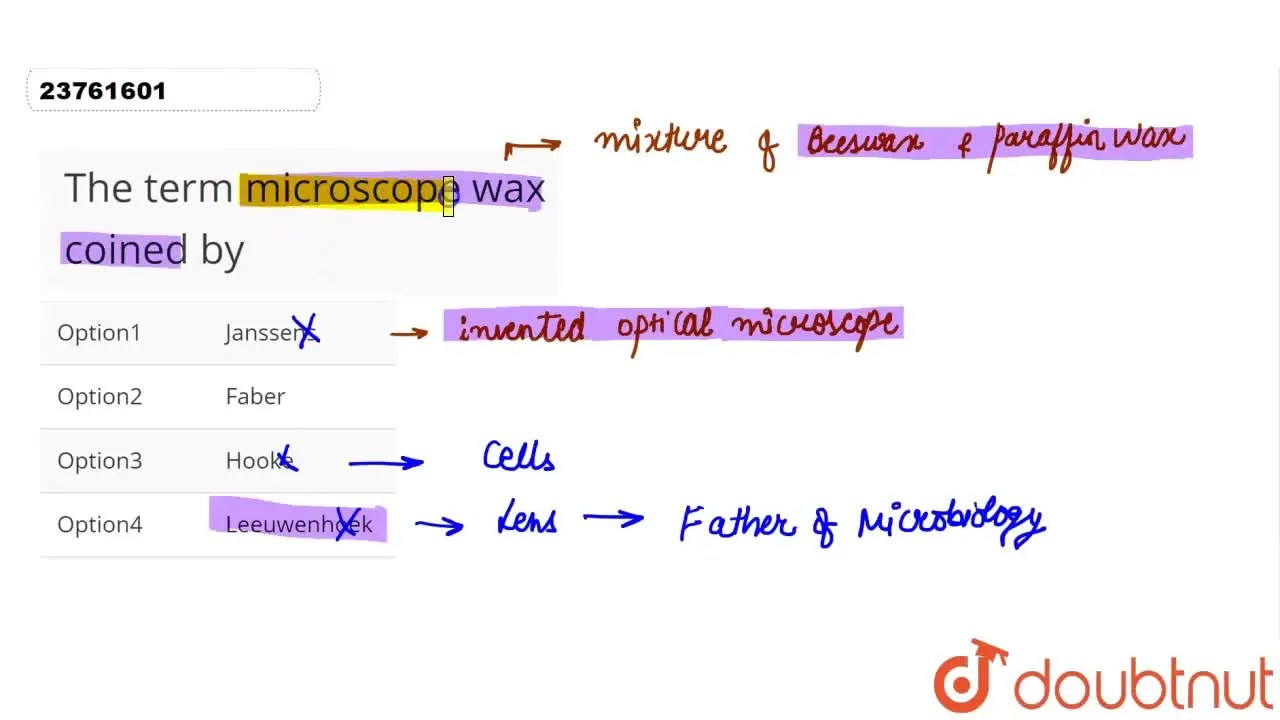 23761601
mixture of Beeswax & Paraffin Wax
The term microscope wax
coined by
Option1 Janssens → invented optical microscope
Option2 Faber
Option3 Hooke → Cells
Option4 Leeuwenhoek → Lens → Father of Microbiology
doubtnut